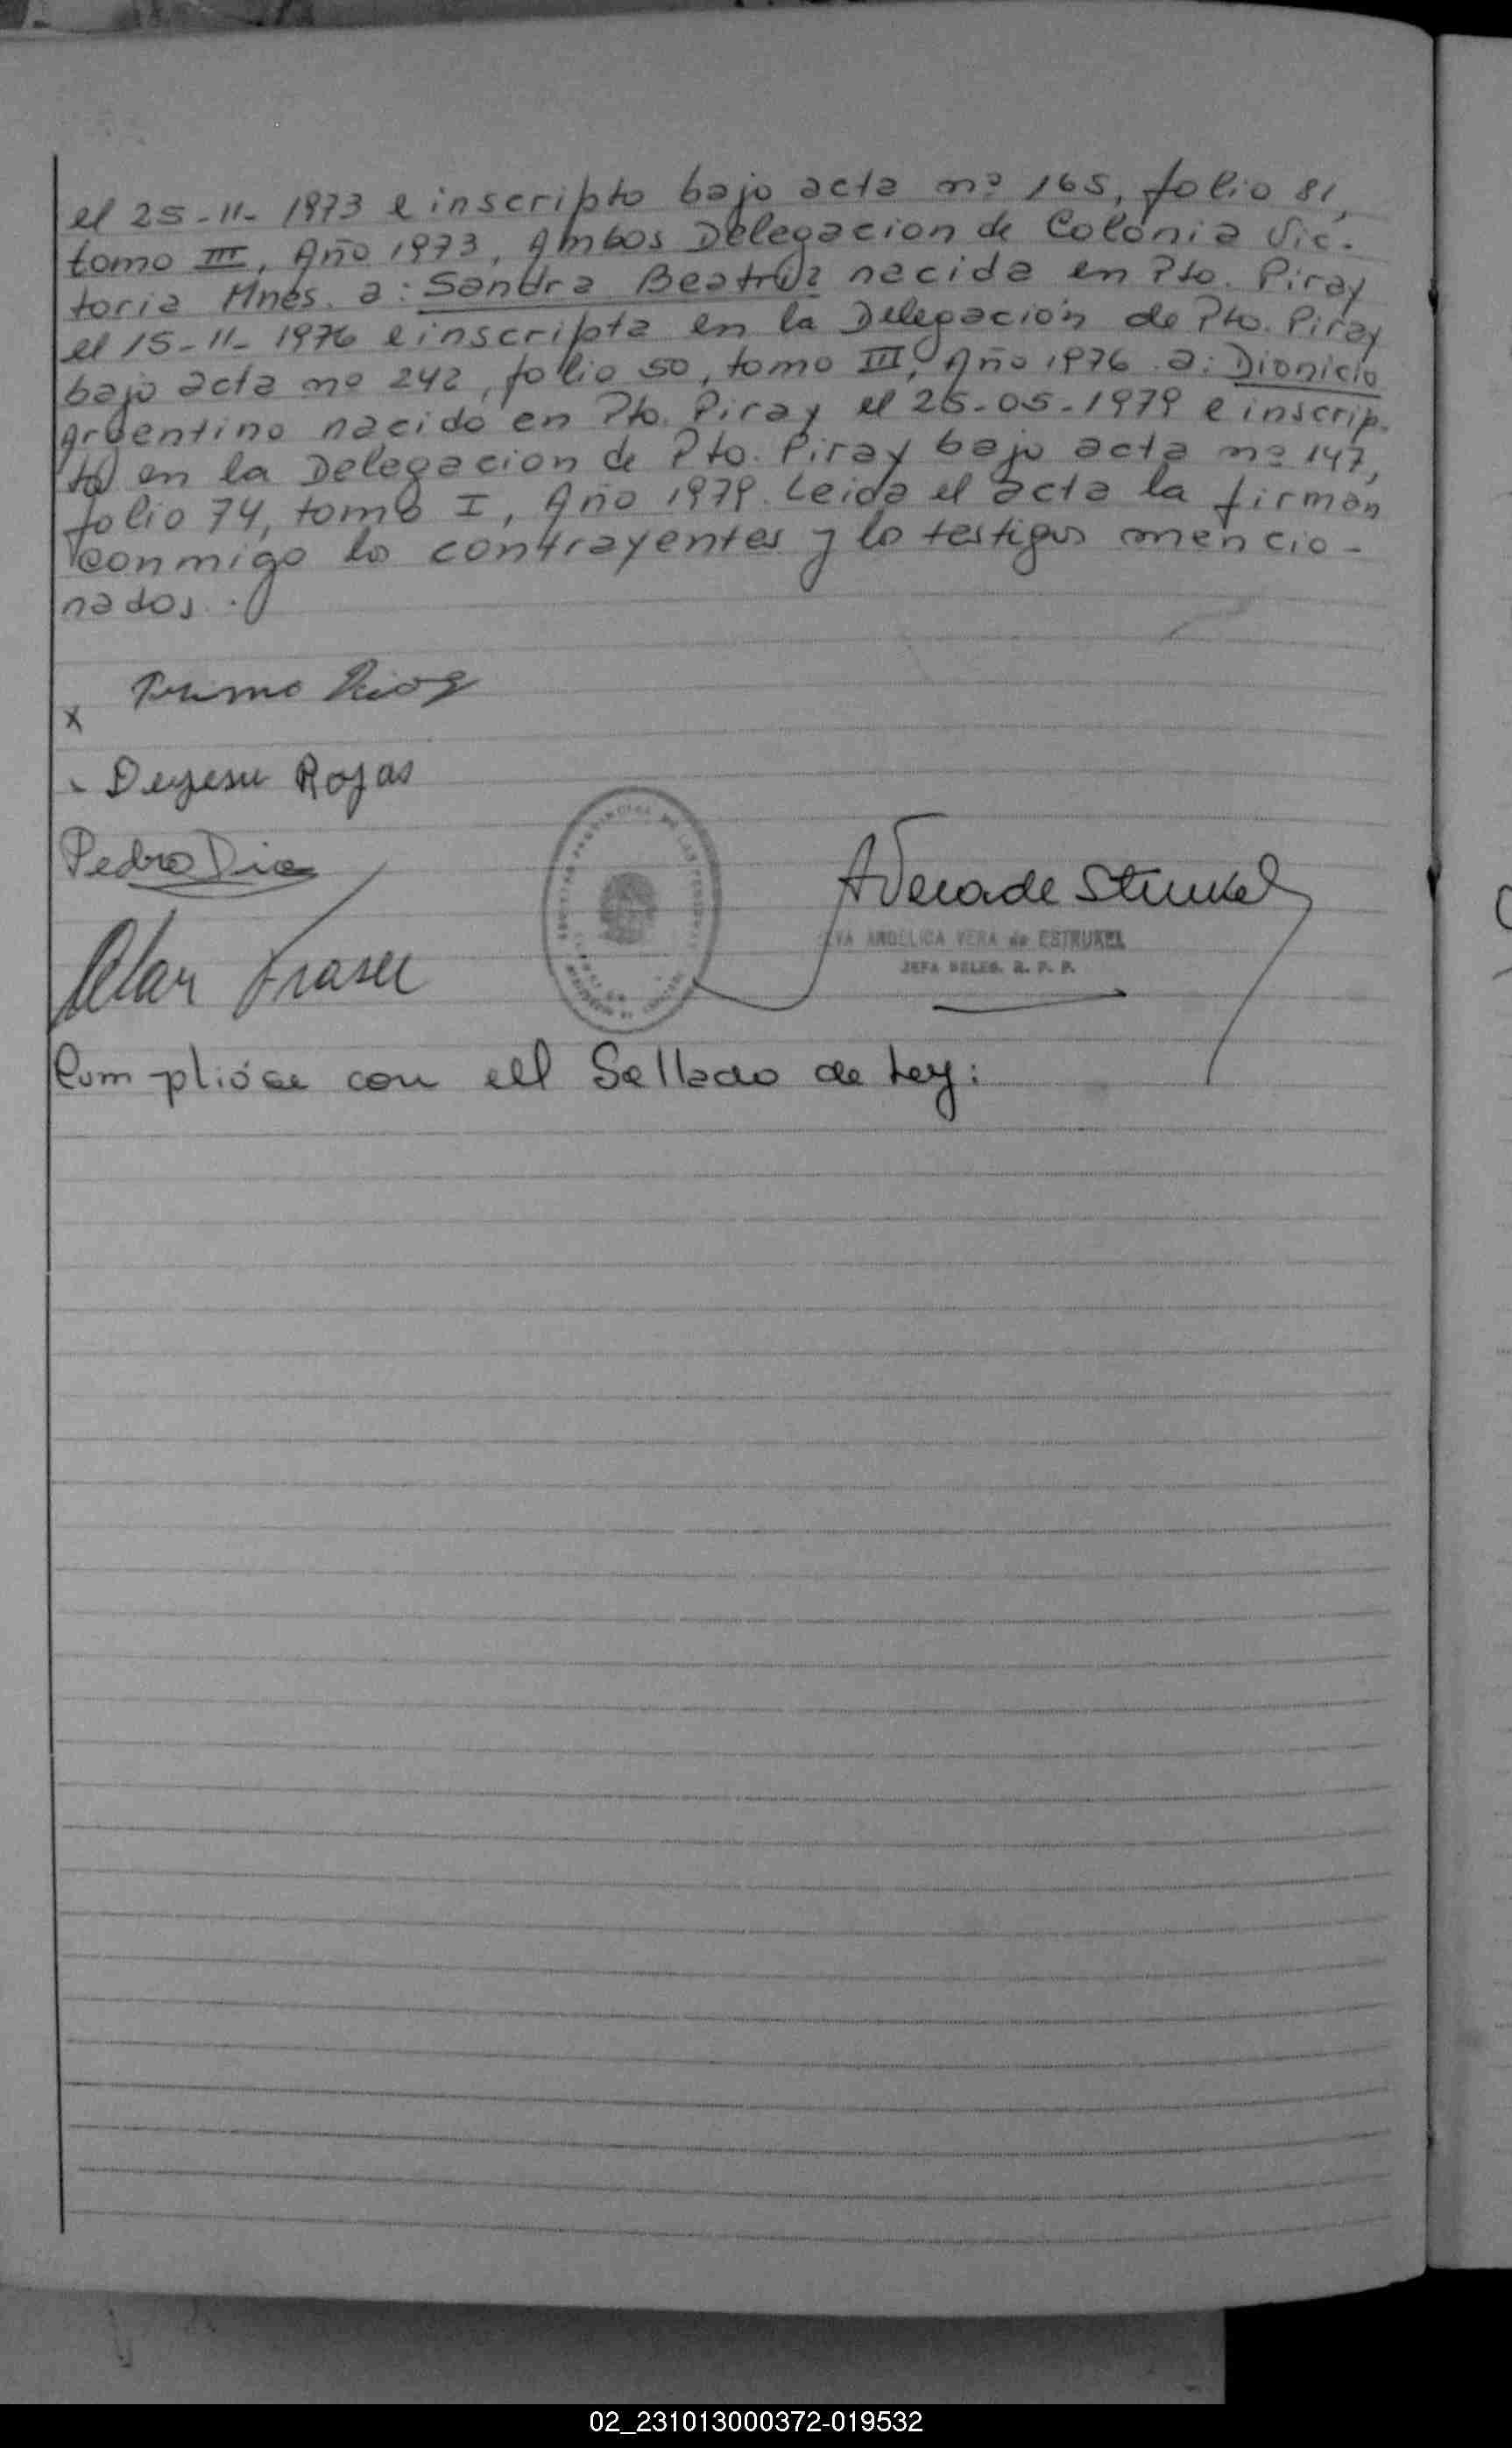 el 25-11-1973 e inscripto bajo acta nº 165, folio 81,
tomo III, Año 1973, Ambos Delegacion de Colonia Vic-
toria Mnes. a: Sandra Beatriz nacida en Pto. Piray
el 15-11-1976 e inscripta en la Delegación de Pto. Piray
bajo acta nº 242, folio 50, tomo III, Año 1976. a: Dionicio
Argentino nacido en Pto. Piray el 25-05-1979 e inscrip-
to en la Delegacion de Pto. Piray bajo acta nº 147,
folio 74, tomo I, Año 1979. Leida el acta la firman
conmigo lo contrayentes y lo testigos mencio-
nados.
x Primo
Rojas
Pedro
A Vera de Strukel
EVA ANGELICA VERA de ESTRUKEL
JEFA DELEG. R. P. P.
Cumplióse con ell Sellado de Ley:
02_231013000372-019532